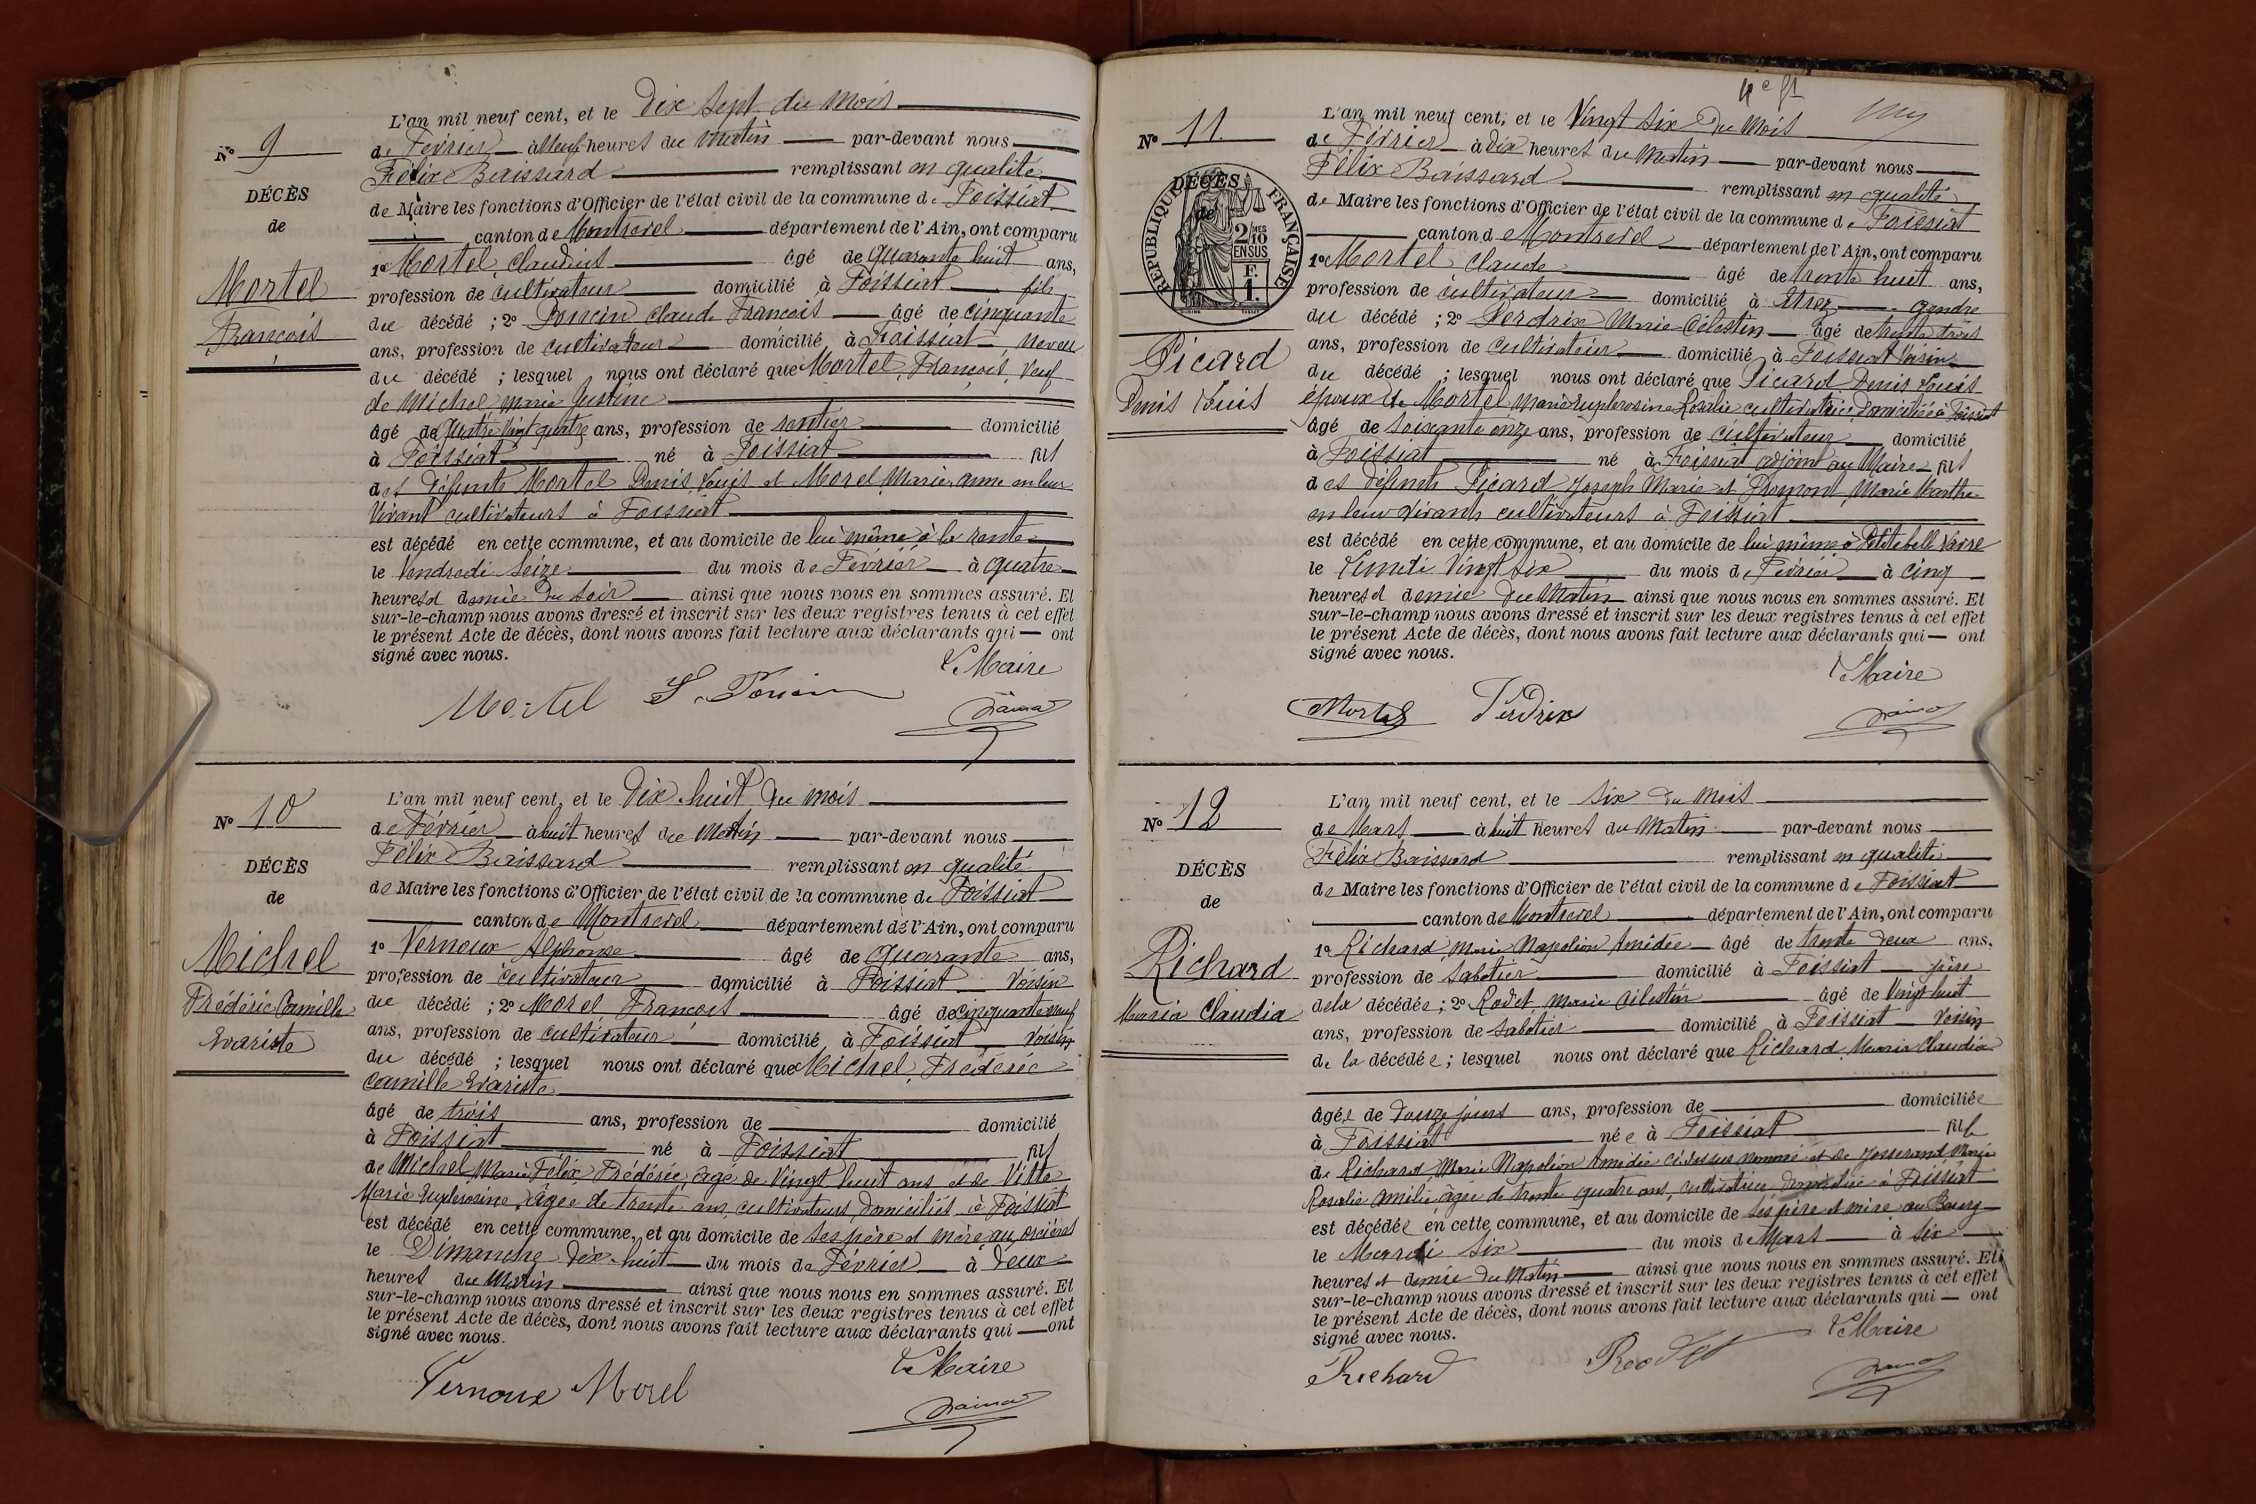 N° 9
DÉCÈS
de
Mortel
François
L'an mil neuf cent, et le Dix sept du mois
de Février à Neuf heures du Matin par-devant nous
Félix Baissard remplissant en qualité
de Maire les fonctions d'Officier de l'état civil de la commune de Foissiat
canton de Montrevel département de l'Ain, ont comparu
1° Mortel, Claudius âgé de Quarante huit ans,
profession de cultivateur domicilié à Foissiat fils
du décédé ; 2° Poncin Claude François âgé de cinquante
ans, profession de cultivateur domicilié à Foissiat Neveu
du décédé ; lesquel nous ont déclaré que Mortel, François, Veuf
de Michel Marie Justine
âgé de Quatre Vingt quatre ans, profession de rentier domicilié
à Foissiat né à Foissiat fils
des défunts Mortel Denis Louis et Morel Marie anne en leur
Vivant cultivateurs à Foissiat
est décédé en cette commune, et au domicile de lui même à la
le Vendredi Seize du mois de Février à quatre
heures et demie du soir ainsi que nous nous en sommes assuré. Et
sur-le-champ nous avons dressé et inscrit sur les deux registres tenus à cet effet
le présent Acte de décès, dont nous avons fait lecture aux déclarants qui ont
signé avec nous.
Le Maire
Mortel Poncin
N° 10
DÉCÈS
de
Michel
Frédéric Camille
Evariste
L'an mil neuf cent, et le Dix huit du mois
de Février à huit heures du Matin par-devant nous
Félix Baissard remplissant en qualité
de Maire les fonctions d'Officier de l'état civil de la commune de Foissiat
canton de Montrevel département de l'Ain, ont comparu
1° Vernoux Alphonse âgé de Quarante ans,
profession de cultivateur domicilié à Foissiat Voisin
du décédé ; 2° Morel, François âgé de cinquante neuf
ans, profession de cultivateur domicilié à Foissiat Voisin
du décédé ; lesquel nous ont déclaré que Michel, Frédéric
Camille Evariste
âgé de trois ans, profession de domicilié
à Foissiat né à Foissiat fils
de Michel, Marie Félix Frédéric, âgé de Vingt huit ans et de Vitte
Marie Euphrosine, âgée de trente ans, cultivateurs, domiciliés à Foissiat
est décédé en cette commune, et au domicile de ses père et mère au
le Dimanche dix-huit du mois de Février à Deux
heures du Matin ainsi que nous nous en sommes assuré. Et
sur-le-champ nous avons dressé et inscrit sur les deux registres tenus à cet effet
le présent Acte de décès, dont nous avons fait lecture aux déclarants qui ont
signé avec nous.
Le Maire
Vernoux Morel
N° 11
DÉCÈS
de
RÉPUBLIQUE FRANÇAISE
2/10
EN SUS
F.
1.
Picard
Denis Louis
L'an mil neuf cent, et le Vingt Six Du Mois
de Février à Dix heures du Matin par-devant nous
Félix Baissard remplissant en qualité
de Maire les fonctions d'Officier de l'état civil de la commune de Foissiat
canton de Montrevel département de l'Ain, ont comparu
1° Mortel Claude âgé de trente huit ans,
profession de cultivateur domicilié à Etrez gendre
du décédé ; 2° Perdrix Marie Célestin âgé de trente trois
ans, profession de cultivateur domicilié à Foissiat Voisin
du décédé ; lesquel nous ont déclaré que Picard Denis Louis
époux de Mortel Marie Euphrosine Rosalie cultivatrice, Domiciliée à Foissiat
âgé de soixante onze ans, profession de cultivateur domicilié
à Foissiat né à Foissiat adjoint au Maire fils
des défunts Picard Joseph Marie et Promont Marie Marthe
en leur Vivants cultivateurs à Foissiat
est décédé en cette commune, et au domicile de lui même à Petite belle Vavre
le Lundi Vingt Six du mois de Février à cinq
heures et demie du Matin ainsi que nous nous en sommes assuré. Et
sur-le-champ nous avons dressé et inscrit sur les deux registres tenus à cet effet
le présent Acte de décès, dont nous avons fait lecture aux déclarants qui ont
signé avec nous.
Le Maire
Mortel Perdrix
N° 12
DÉCÈS
de
Richard
Maria Claudia
L'an mil neuf cent, et le Six du Mois
de Mars à huit heures du Matin par-devant nous
Félix Baissard remplissant en qualité
de Maire les fonctions d'Officier de l'état civil de la commune de Foissiat
canton de Montrevel département de l'Ain, ont comparu
1° Richard, Marie Napoléon Amédée âgé de trente deux ans,
profession de Sabotier domicilié à Foissiat père
de la décédée ; 2° Rodet, Marie Célestin âgé de Vingt huit
ans, profession de sabotier domicilié à Foissiat Voisin
de la décédée ; lesquel nous ont déclaré que Richard, Maria Claudia
âgée de Douze jours ans, profession de domiciliée
à Foissiat née à Foissiat fille
de Richard, Marie Napoléon Amédée ci dessus nommé et de Josserand Marie
Rosalie Amélie âgée de trente quatre ans, cultivatrice, domiciliée à Foissiat
est décédée en cette commune, et au domicile de ses père et mère au Bourg
le Mardi Six du mois de Mars à six
heures et demie du Matin ainsi que nous nous en sommes assuré. Et
sur-le-champ nous avons dressé et inscrit sur les deux registres tenus à cet effet
le présent Acte de décès, dont nous avons fait lecture aux déclarants qui ont
signé avec nous.
Le Maire
Richard Rodet